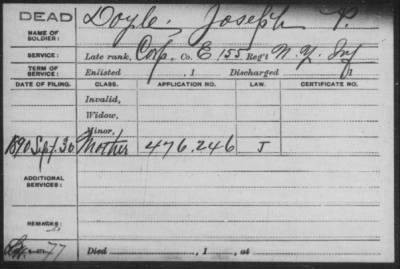 DEAD
NAME OF SOLDIER: Doyle, Joseph P.
SERVICE: Late rank, Corp, Co. E 155 Reg't N.Y. Inf
TERM OF SERVICE: Enlisted , 1 Discharged , 1
DATE OF FILING. CLASS. APPLICATION NO. LAW. CERTIFICATE NO.
Invalid,
Widow,
Minor,
1890 Sept. 30 Mother 476.246 J
ADDITIONAL SERVICES:
REMARKS:
77 Died , 1 , at